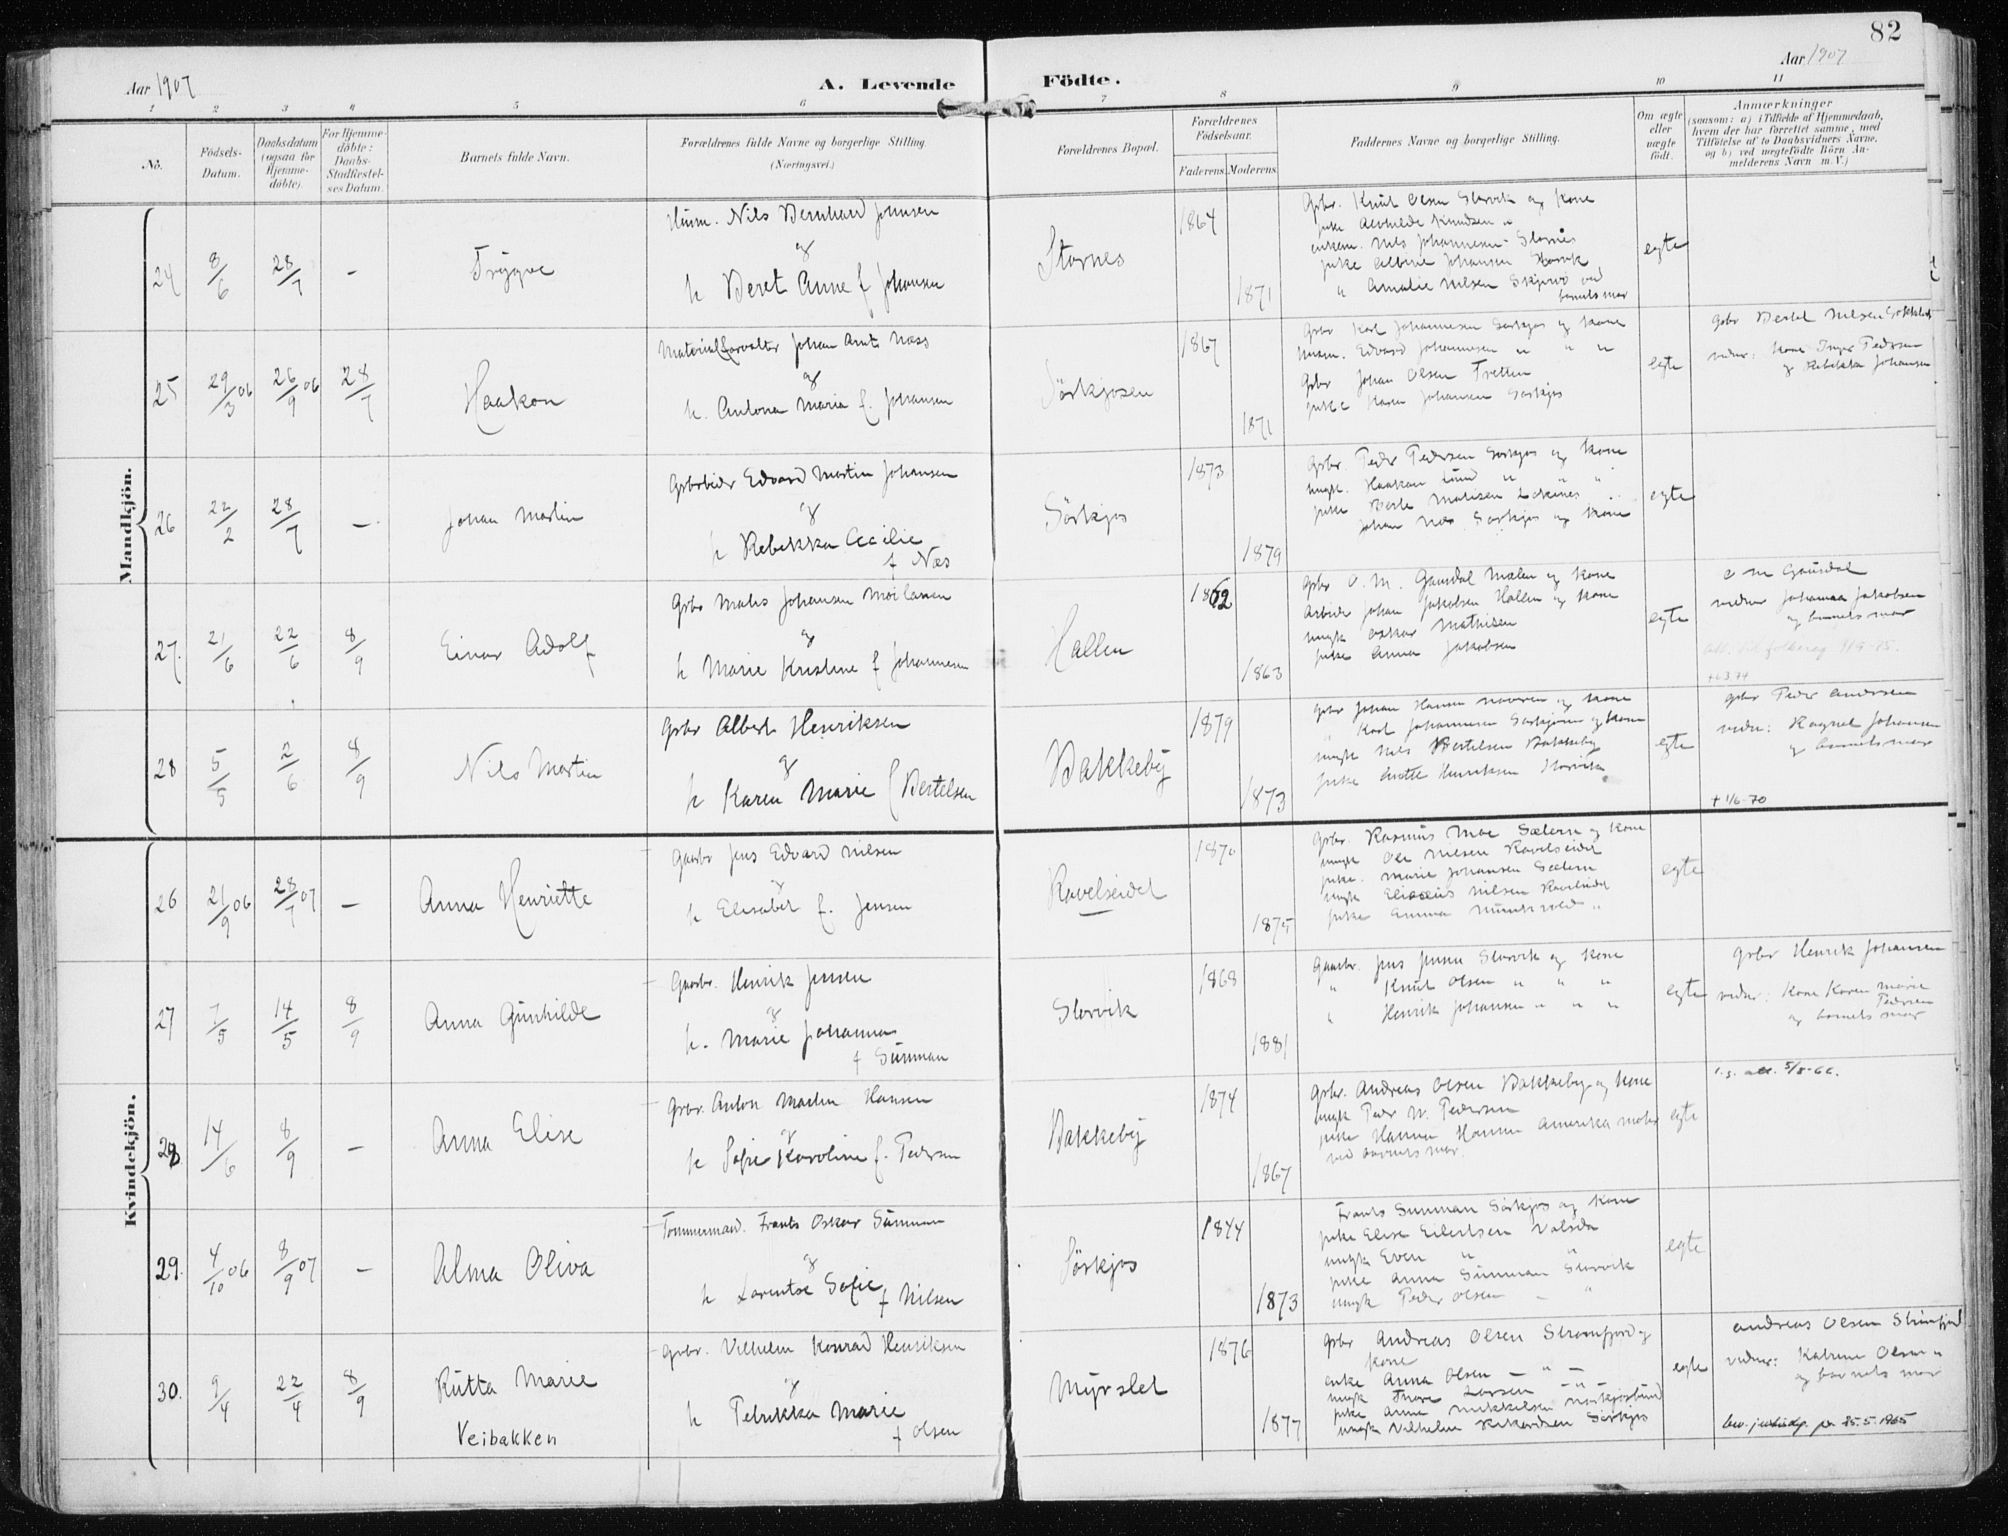 82
Aar 1907
A. Levende
Födte.
Aar 1907
1 2 3 4 5 6 7 8 9 10 11
No.
Födsels-
Datum.
Daabsdatum
(ogsaa for
Hjemme-
döbte).
For Hjemme-
döbte:
Daabs-
Stadfæstel-
ses Datum.
Barnets fulde Navn.
Forældrenes fulde Navne og borgerlige Stilling.
(Næringsvei.)
Forældrenes Bopæl.
Forældrenes
Födselsaar.
Faderens. Moderens.
Faddernes Navne og borgerlige Stilling.
Om ægte
eller
uægte
födt.
Anmærkninger
(saasom: a) i Tilfælde af Hjemmedaab,
hvem der har forrettet samme, med
Tilföielse af to Daabsvidners Navne,
og b) ved uægtefödte Börn An-
melderens Navn m. V.)
Mandkjön.
24
8/6
28/7
–
Trygve
Husm. Nils Bernhard Johnsen
og
h Beret Anne f Johansen
Stornes
1864
1871
Gbr. Knut Olsen Storvik og kone
pike Alvhilde Knudsen "
enkem. Nils Johannesen Stornes
pike Albine Johansen Storvik
" Amalie Nilsen Skjervö ved
barnets mor
egte
25
29/3 06
26/9 06
28/7
Haakon
Materialforvalter Johan Arnt Næss
og
h. Antona Maria f. Johansen
Sörkjosen
1867
1871
Gbr Karl Johannesen Sorkjos og kone
husm. Edvard Johannesen " " "
Gbr Johan Olsen Fretten
pike Karen Johansen Sorkjos
egte
gbr Bertel Nilsen
vidner: kone Inger Pedersen
og Rebekka Johansen
26
22/2
28/7
–
Johan Martin
Gbrbider Edvard Martin Johansen
og
h Rebekka Cecilie
f Næs
Sörkjos
1873
1879
Gbr. Peder Pedersen Sorkjos og kone
ungk. Haakon Lund " " "
pike Berte Mathisen
Johan Næs Sorkjos og kone
egte
27.
21/6
22/6
8/9
Einar Adolf
Gbr Mathis Johansen Moilanen
og
h Marie Kristine f Johannesen
Hallen
1862
1863
Gbr O. M. Gausdal Mælen og kone
Arbeider Johan Jakobsen Hallen og kone
ungk Oskar Mathisen
pike Anna Jakobsen
egte
O M Gausdal
vidner Johanna Jakobsen
og barnets mor
28
5/5
2/6
8/9
Nils Martin
Gbr Albert Henriksen
og
h Karen Marie f Bertelsen
Bakkeby
1879
1873
Gbr Johan Hansen og kone
" Karl Johannesen Sorkjosen og kone
ungk Nils Bertelsen Bakkeby
pike Henriksen Storvik
egte
gbr Peder Andersen
vidn: Ragnal Johansen
og barnets mor
+ 1/6-70
Kvindekjön.
26
21/9 06
28/7 07
–
Anna Henriette
Gaardbr Jens Edvard Nilsen
og
h Elisabet f. Jensen
Ravelseidet
1870
1875
Gbr. Rasmus Moe Sælern og kone
ungk Ole Nilsen Ravelseidet
pike. Marie Johansen Sælern
ungk Elisæus Nilsen Ravelseidet
pike Emma "
egte
27
7/5
14/5
8/9
Anna Gunhilde
Gaardbr. Henrik Jensen
og
h. Marie Johanna
f Sunman
Storvik
1868
1881
Gaardbr. Jens Jensen Storvik og kone
" Knut Olsen " " "
" Henrik Johansen " " "
egte
gbr Henrik Johansen
vidner: Kone Karen Marie
Pedersen
og barnets mor
28
14/6
8/9
–
Anna Elise
Gbr. Anton Martin Hansen
og
h Sofie Karoline f. Pedersen
Bakkeby
1874
1867
Gbr. Andreas Olsen Bakkeby og kone
ungk Peder N. Pedersen
pike Hanna Hansen Amerika møter
ved barnets mor.
egte
att. 5/8-66.
29.
4/10 06
8/9 07
–
Alma Oliva
Tommermand. Frants Oskar Sunman
og
h Lorentse Sofie
f Nilsen
Sörkjos
1844
1873
Frants Sunman Sorkjos og kone
pike Elise Eilertsen
ungk Even "
pike Anna Sunman Storvik
ungk Peder Olsen – "
egte
30.
9/4
22/4
8/9
Rutta Marie
Veibakken
Gbr. Vilhelm Konrad Henriksen
og
h Petrikka Marie
f Olsen
Myrslet
1876
1877
Gbr Andreas Olsen Straumfjord og
kone
enke Anna Olsen – " –
ungk Thore Larsen – " –
pike Anna Mikkelsen Nordkjosbund
ungk Vilhelm Rikardsen Sörkjos
egte
Andreas Olsen Straumfjord
vidner: Katrine Olsen "
og barnets mor
25.5.1965